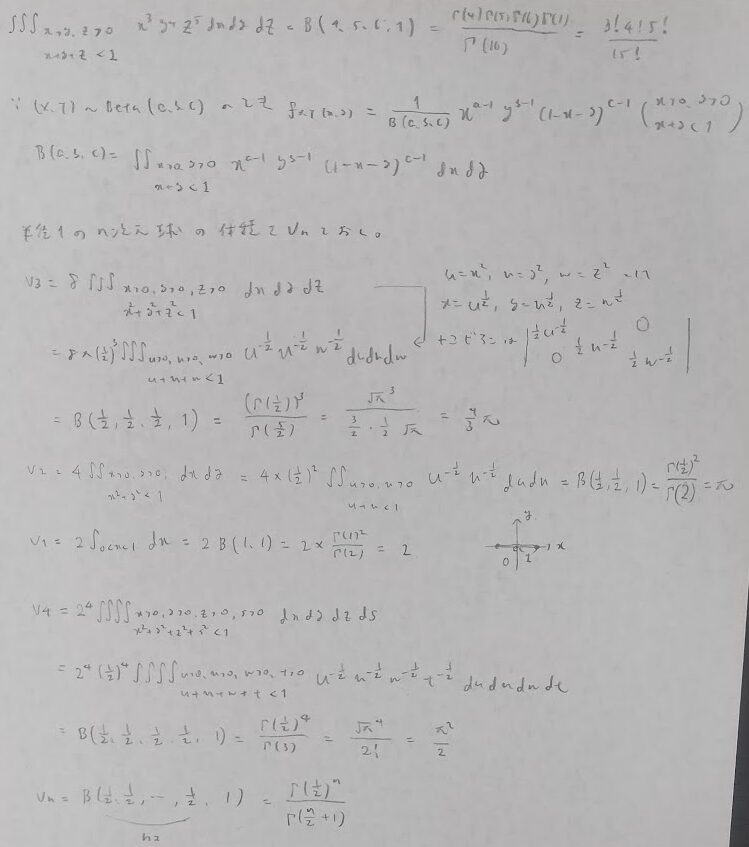 ∭ x>0, y>0, z>0, x+y+z<1 x³ y⁴ z⁵ dx dy dz = B(4, 5, 6, 1) = Γ(4)Γ(5)Γ(6)Γ(1) / Γ(16) = 3! 4! 5! / 15!
∵ (X, Y) ~ Beta(a, b, c) のとき f_{X,Y}(x, y) = 1/B(a, b, c) x^{a-1} y^{b-1} (1-x-y)^{c-1} (x>0, y>0, x+y<1)
B(a, b, c) = ∬ x>0, y>0, x+y<1 x^{a-1} y^{b-1} (1-x-y)^{c-1} dx dy
半径1のn次元球の体積をVnとおく。
V3 = 8 ∭ x>0, y>0, z>0, x²+y²+z²<1 dx dy dz
u=x², v=y², w=z²
x=u^{1/2}, y=v^{1/2}, z=w^{1/2}
ヤコビアンは | ½u^{-1/2} 0 ½v^{-1/2} 0 ½w^{-1/2} |
= 8×(½)³ ∭ u>0, v>0, w>0, u+v+w<1 u^{-1/2} v^{-1/2} w^{-1/2} du dv dw
= B(½, ½, ½, 1) = (Γ(½))³ / Γ(5/2) = √π³ / (3/2 · 1/2 √π) = 4/3 π
V2 = 4 ∬ x>0, y>0, x²+y²<1 dx dy = 4×(½)² ∬ u>0, v>0, u+v<1 u^{-1/2} v^{-1/2} du dv = B(½, ½, 1) = Γ(½)² / Γ(2) = π
V1 = 2 ∫ 0<x<1 dx = 2 B(1, 1) = 2× Γ(1)² / Γ(2) = 2
y
x
0 1
V4 = 2⁴ ⨌ x>0, y>0, z>0, s>0, x²+y²+z²+s²<1 dx dy dz ds
= 2⁴ (½)⁴ ⨌ u>0, v>0, w>0, t>0, u+v+w+t<1 u^{-1/2} v^{-1/2} w^{-1/2} t^{-1/2} du dv dw dt
= B(½, ½, ½, ½, 1) = Γ(½)⁴ / Γ(3) = √π⁴ / 2! = π²/2
Vn = B(½, ½, …, ½, 1) = Γ(½)ⁿ / Γ(n/2 + 1)
nコ